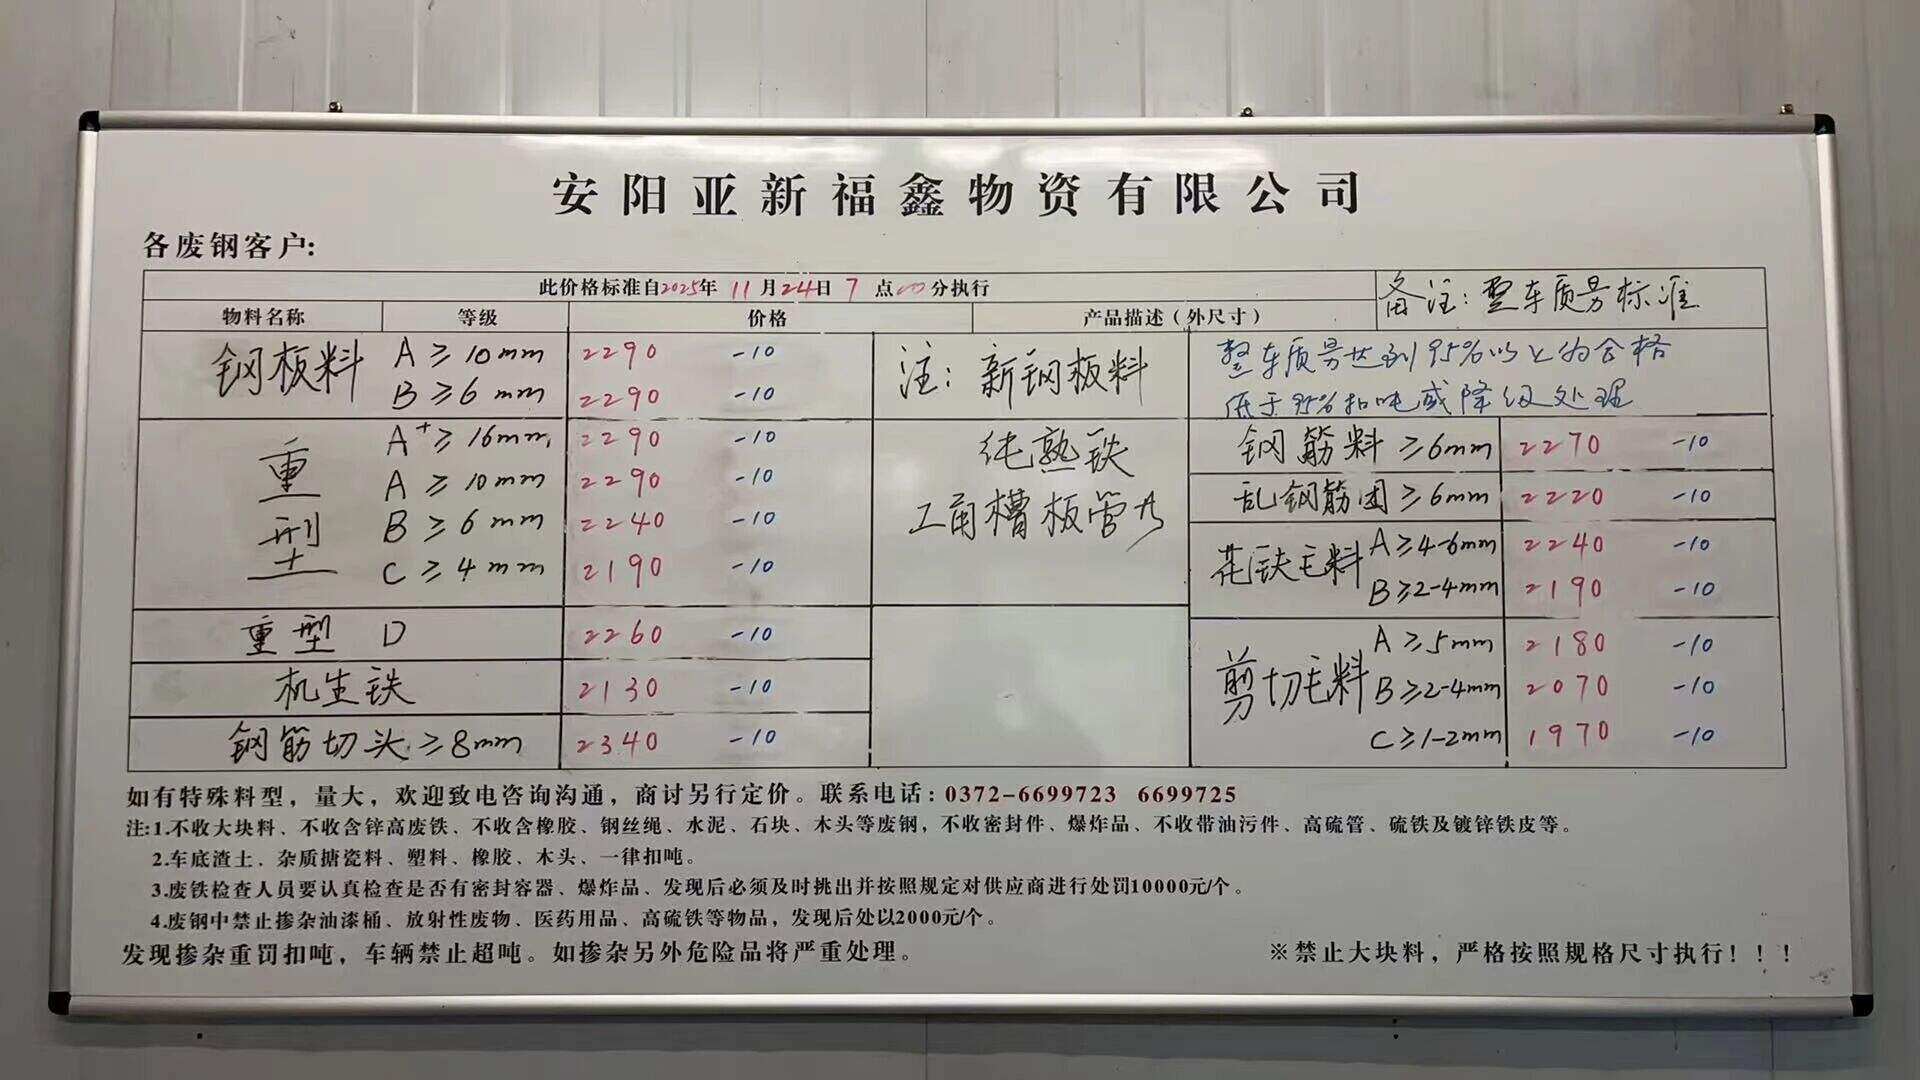 安阳亚新福鑫物资有限公司
各废钢客户:
此价格标准自2025年 11月24日 7 点00分执行
备注: 整车质另标准
物料名称 等级 价格 产品描述（外尺寸）
钢板料 A ≥ 10mm 2290 -10
B ≥ 6mm 2290 -10
注: 新钢板料
整车质另达到95%以上的合格
低于95%扣吨或降级处理
重型 A+ ≥ 16mm 2290 -10
A ≥ 10mm 2290 -10
B ≥ 6mm 2240 -10
C ≥ 4mm 2190 -10
纯熟铁
工角槽板管
重型 D 2260 -10
机生铁 2130 -10
钢筋切头 ≥8mm 2340 -10
钢筋料 ≥6mm 2270 -10
乱钢筋团 ≥6mm 2220 -10
花铁毛料 A ≥4-6mm 2240 -10
B ≥2-4mm 2190 -10
剪切毛料 A ≥5mm 2180 -10
B ≥2-4mm 2070 -10
C ≥1-2mm 1970 -10
如有特殊料型，量大，欢迎致电咨询沟通，商讨另行定价。联系电话: 0372-6699723 6699725
注:1.不收大块料、不收含锌高废铁、不收含橡胶、钢丝绳、水泥、石块、木头等废钢，不收密封件、爆炸品、不收带油污件、高硫管、硫铁及镀锌铁皮等。
2.车底渣土、杂质搪瓷料、塑料、橡胶、木头、一律扣吨。
3.废铁检查人员要认真检查是否有密封容器、爆炸品、发现后必须及时挑出并按照规定对供应商进行处罚10000元/个。
4.废钢中禁止掺杂油漆桶、放射性废物、医药用品、高硫铁等物品，发现后处以2000元/个。
发现掺杂重罚扣吨，车辆禁止超吨。如掺杂另外危险品将严重处理。
※禁止大块料，严格按照规格尺寸执行！！！